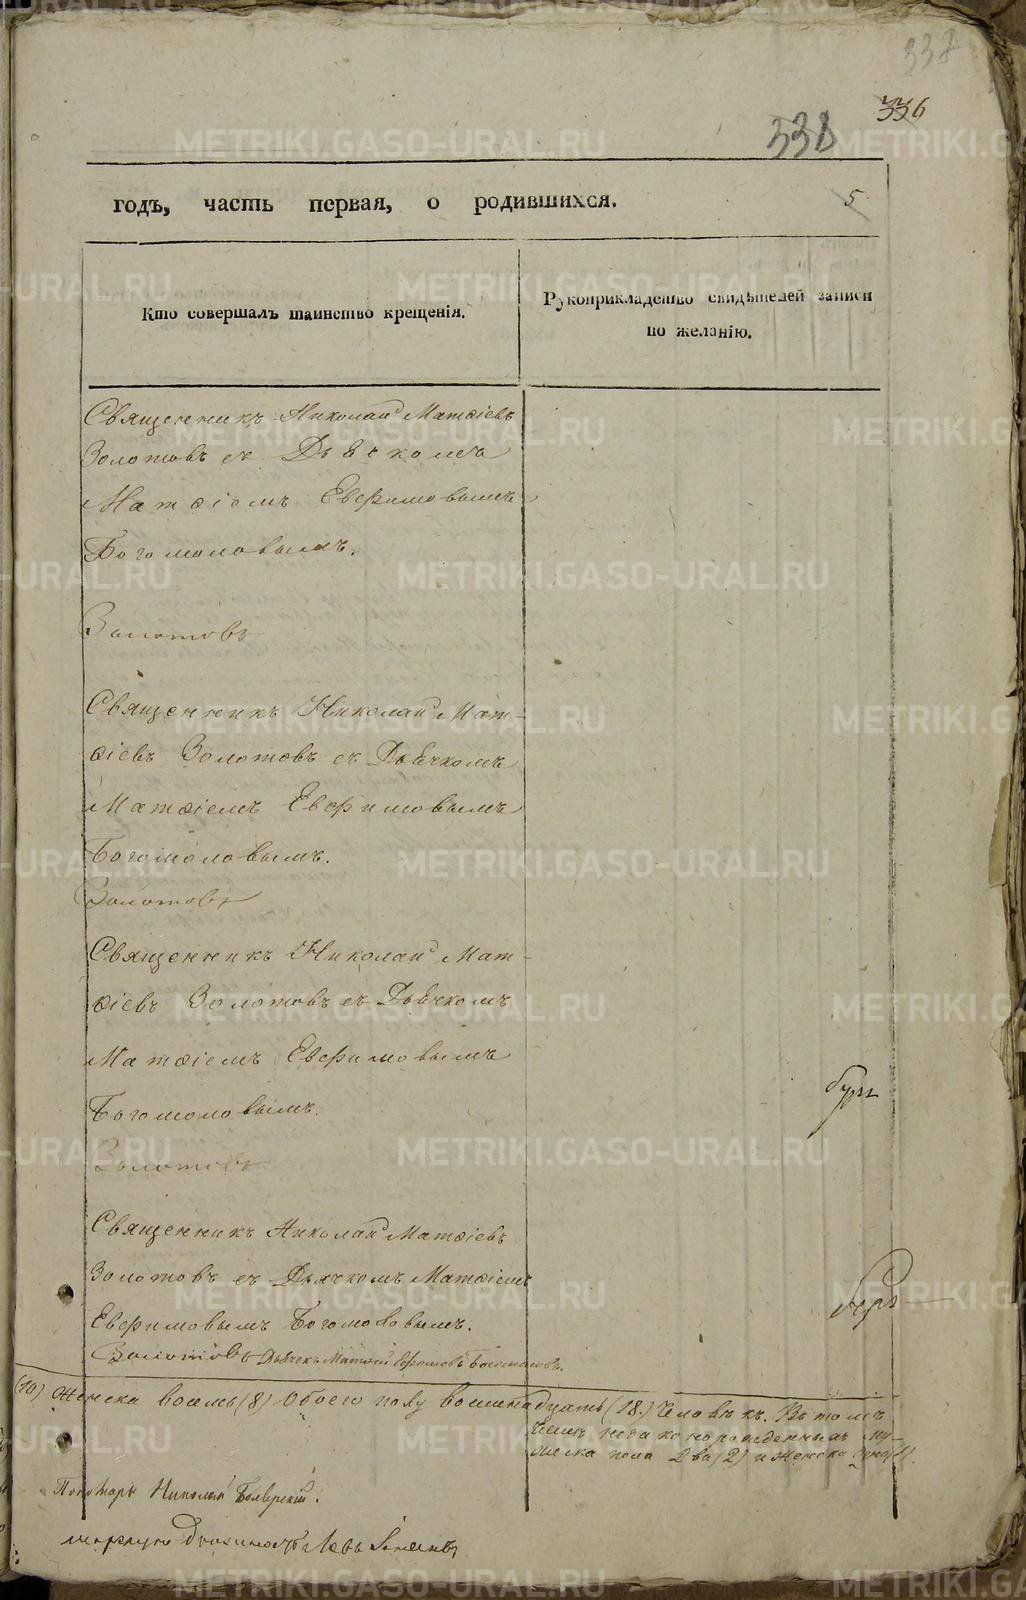 337
336
338
годъ, часть первая, о родившихся.
5
Кто совершалъ таинство крещенія.
Рукоприкладство свидѣтелей записи
по желанію.
Священникъ Николай Матѳіевъ
Золотовъ съ Дьячкомъ
Матѳіемъ Евфимовымъ
Богомоловымъ.
Золотовъ
Священникъ Николай Мат-
ѳіевъ Золотовъ съ Дьячкомъ
Матѳіемъ Евфимовымъ
Богомоловымъ.
Золотовъ
Священникъ Николай Мат-
ѳіевъ Золотовъ съ Дьячкомъ
Матѳіемъ Евфимовымъ
Богомоловымъ.
Золотовъ
Священникъ Николай Матѳіевъ
Золотовъ съ Дьячкомъ Матѳіемъ
Евфимовымъ Богомоловымъ.
Золотовъ Дьячекъ Матѳій Евфимовъ Богомоловъ.
(10) Женска восемь (8) Обоего полу восемнадцать (18.) Человѣкъ. Въ томъ
числѣ незаконорожденныхъ му-
жеска пола два (2) и женска
Пономарь Николай
METRIKI.GASO-URAL.RU